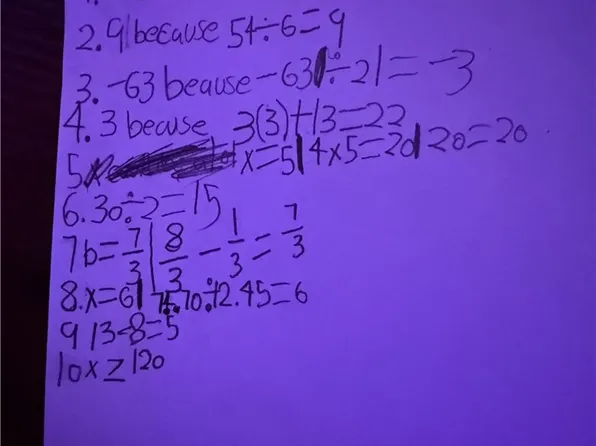 2. 9| because 54÷6=9
3. -63 beause -63|÷21=-3
4. 3 becuse 3(3)+13=22
5. x=5| 4x5=20| 20=20
6. 30÷2=15
7 b=7/3| 8/3 - 1/3 = 7/3
8. x=6| 74.70÷12.45=6
9 13-8=5
10 x ≥ 120